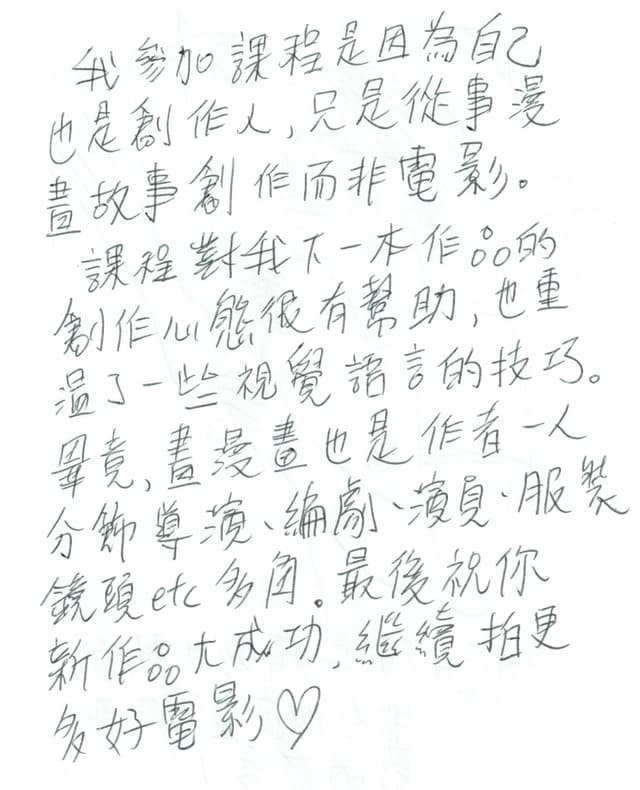 我參加課程是因為自己
也是創作人,只是從事漫
畫故事創作而非電影。
課程對我下一本作品的
創作心態很有幫助,也重
溫了一些視覺語言的技巧。
畢竟,畫漫畫也是作者一人
分飾導演、編劇、演員、服裝
鏡頭etc多角。最後祝你
新作品大成功,繼續拍更
多好電影♡